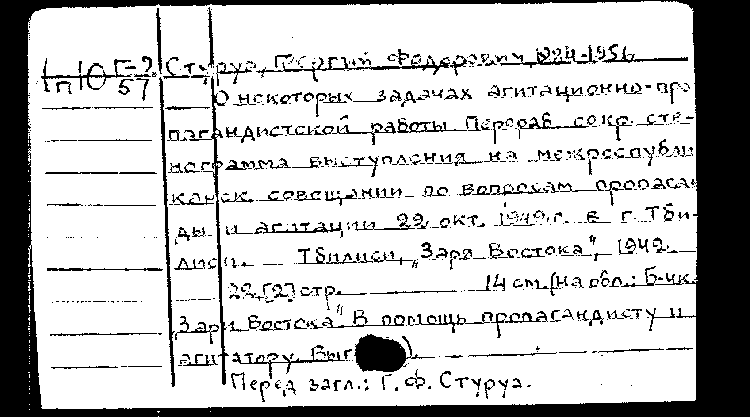 Стуруа, Георгий Федорович, 1884-1956
1п10 Г-2/57
О некоторых задачах агитационно-про-
пагандистской работы Перераб. сокр. сте-
нограмма выступления на межреспубли
канск. совещании по вопросам пропаган
ды и агитации 22 окт. 1949 г. в г. Тби-
лиси. Тбилиси, „Заря Востока", 1949.
22,[2] стр. 14 см. (На обл.: Б-чк.
„Зари Востока". В помощь пропагандисту и
агитатору. Вып ).
Перед загл.: Г. Ф. Стуруа.